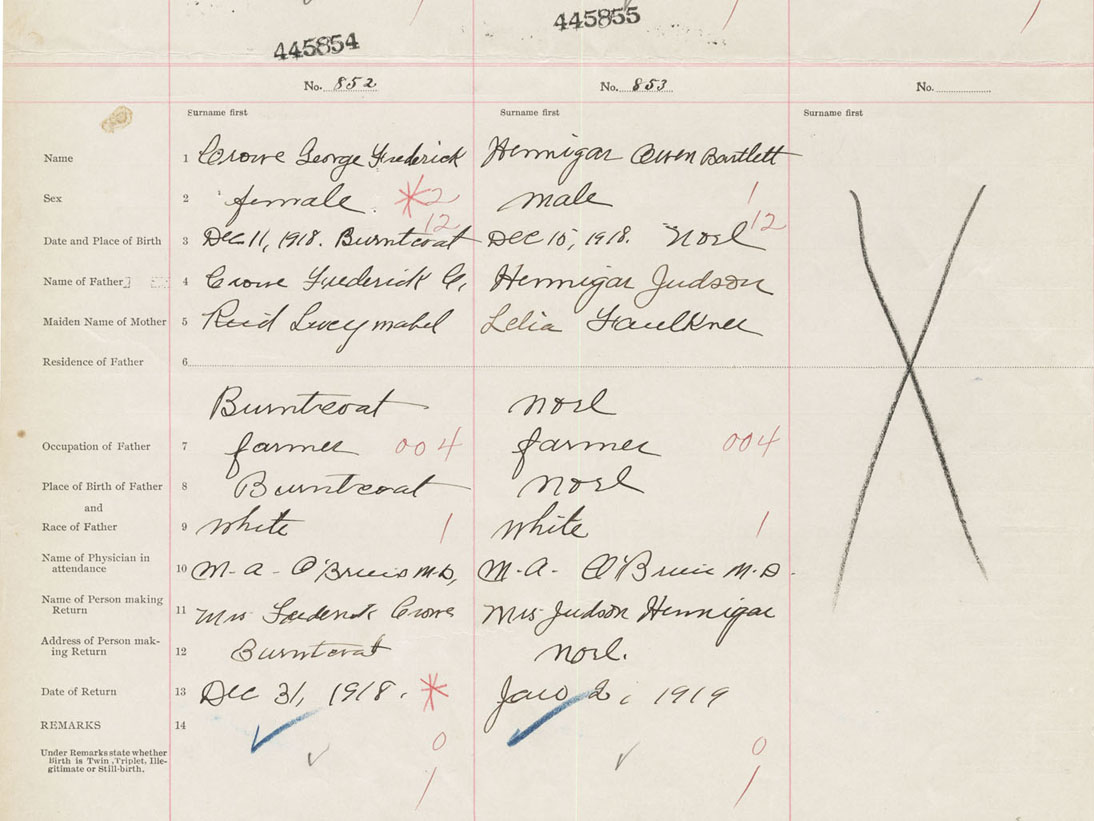 445854 445855
No. 852 No. 853 No.
Surname first Surname first Surname first
Name 1 Crowe George Frederick Hennigar Owen Bartlett
Sex 2 female * 2 male 1
12 12
Date and Place of Birth 3 Dec 11, 1918. Burntcoat Dec 10, 1918. Noel
Name of Father 4 Crowe Frederick G, Hennigar Judson
Maiden Name of Mother 5 Reid Lucey mabel Lelia Faulkner
Residence of Father 6
Burntcoat Noel
Occupation of Father 7 farmer 004 farmer 004
Place of Birth of Father 8 Burntcoat Noel
and
Race of Father 9 white 1 white 1
Name of Physician in
attendance 10 M. A. O'Brien M.D, M. A. O'Brien M.D.
Name of Person making
Return 11 Mrs Frederick Crowe Mrs Judson Hennigar
Address of Person mak-
ing Return 12 Burntcoat Noel.
Date of Return 13 Dec 31, 1918. * Jan 2, 1919
REMARKS 14
0 0
Under Remarks state whether
Birth is Twin, Triplet, Ille-
gitimate or Still-birth.
1 1